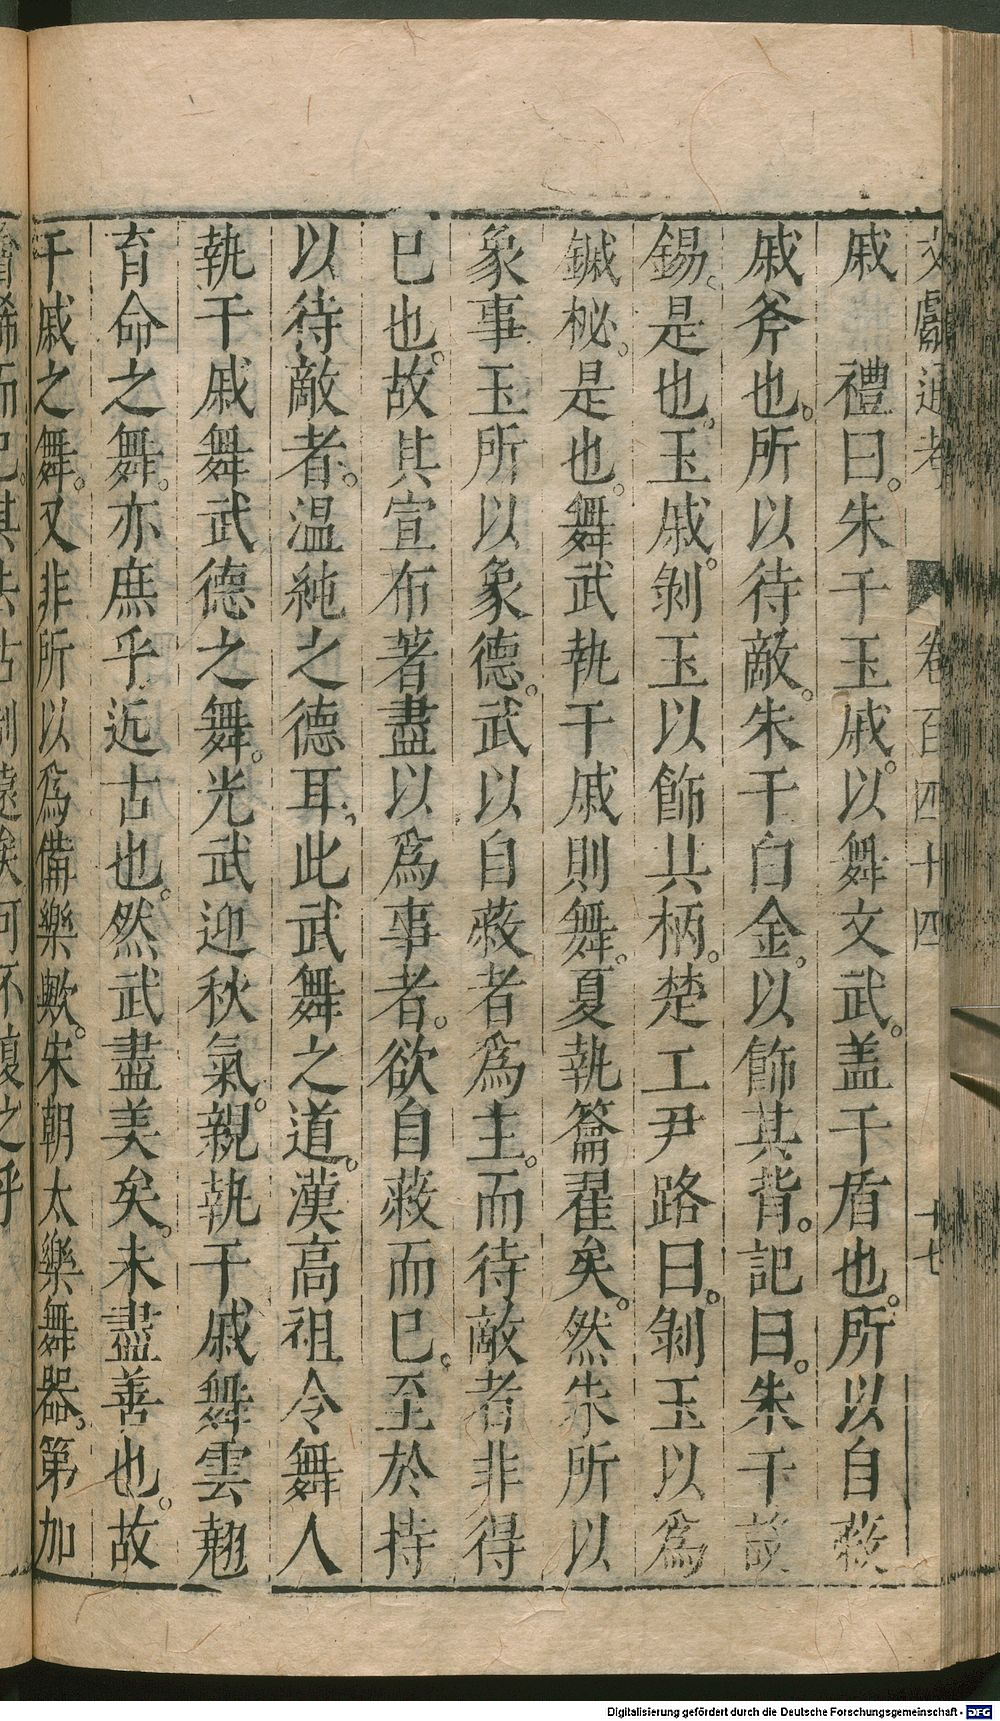 文獻通考 卷百四十四 十七
戚 禮曰。朱干玉戚。以舞文武。盖干盾也。所以自蔽
戚斧也。所以待敵。朱干白金。以飾其背。記曰。朱干設
錫。是也。玉戚。剝玉以飾其柄。楚工尹路曰。剝玉以爲
鏚柲。是也。舞武執干戚則舞。夏執籥翟矣。然朱所以
象事玉所以象德。武以自蔽者爲主。而待敵者非得
已也。故其宣布著盡以爲事者。欲自蔽而已。至於持
以待敵者。温純之德耳。此武舞之道。漢高祖令舞人
執干戚舞武德之舞。光武迎秋氣。親執干戚舞雲翹
育命之舞。亦庶乎近古也。然武盡美矣。未盡善也。故
干戚之舞。又非所以爲備樂歟。宋朝太樂舞器。第加
繪飾而已。其去古制遠矣。何不復之乎
Digitalisierung gefördert durch die Deutsche Forschungsgemeinschaft - DFG